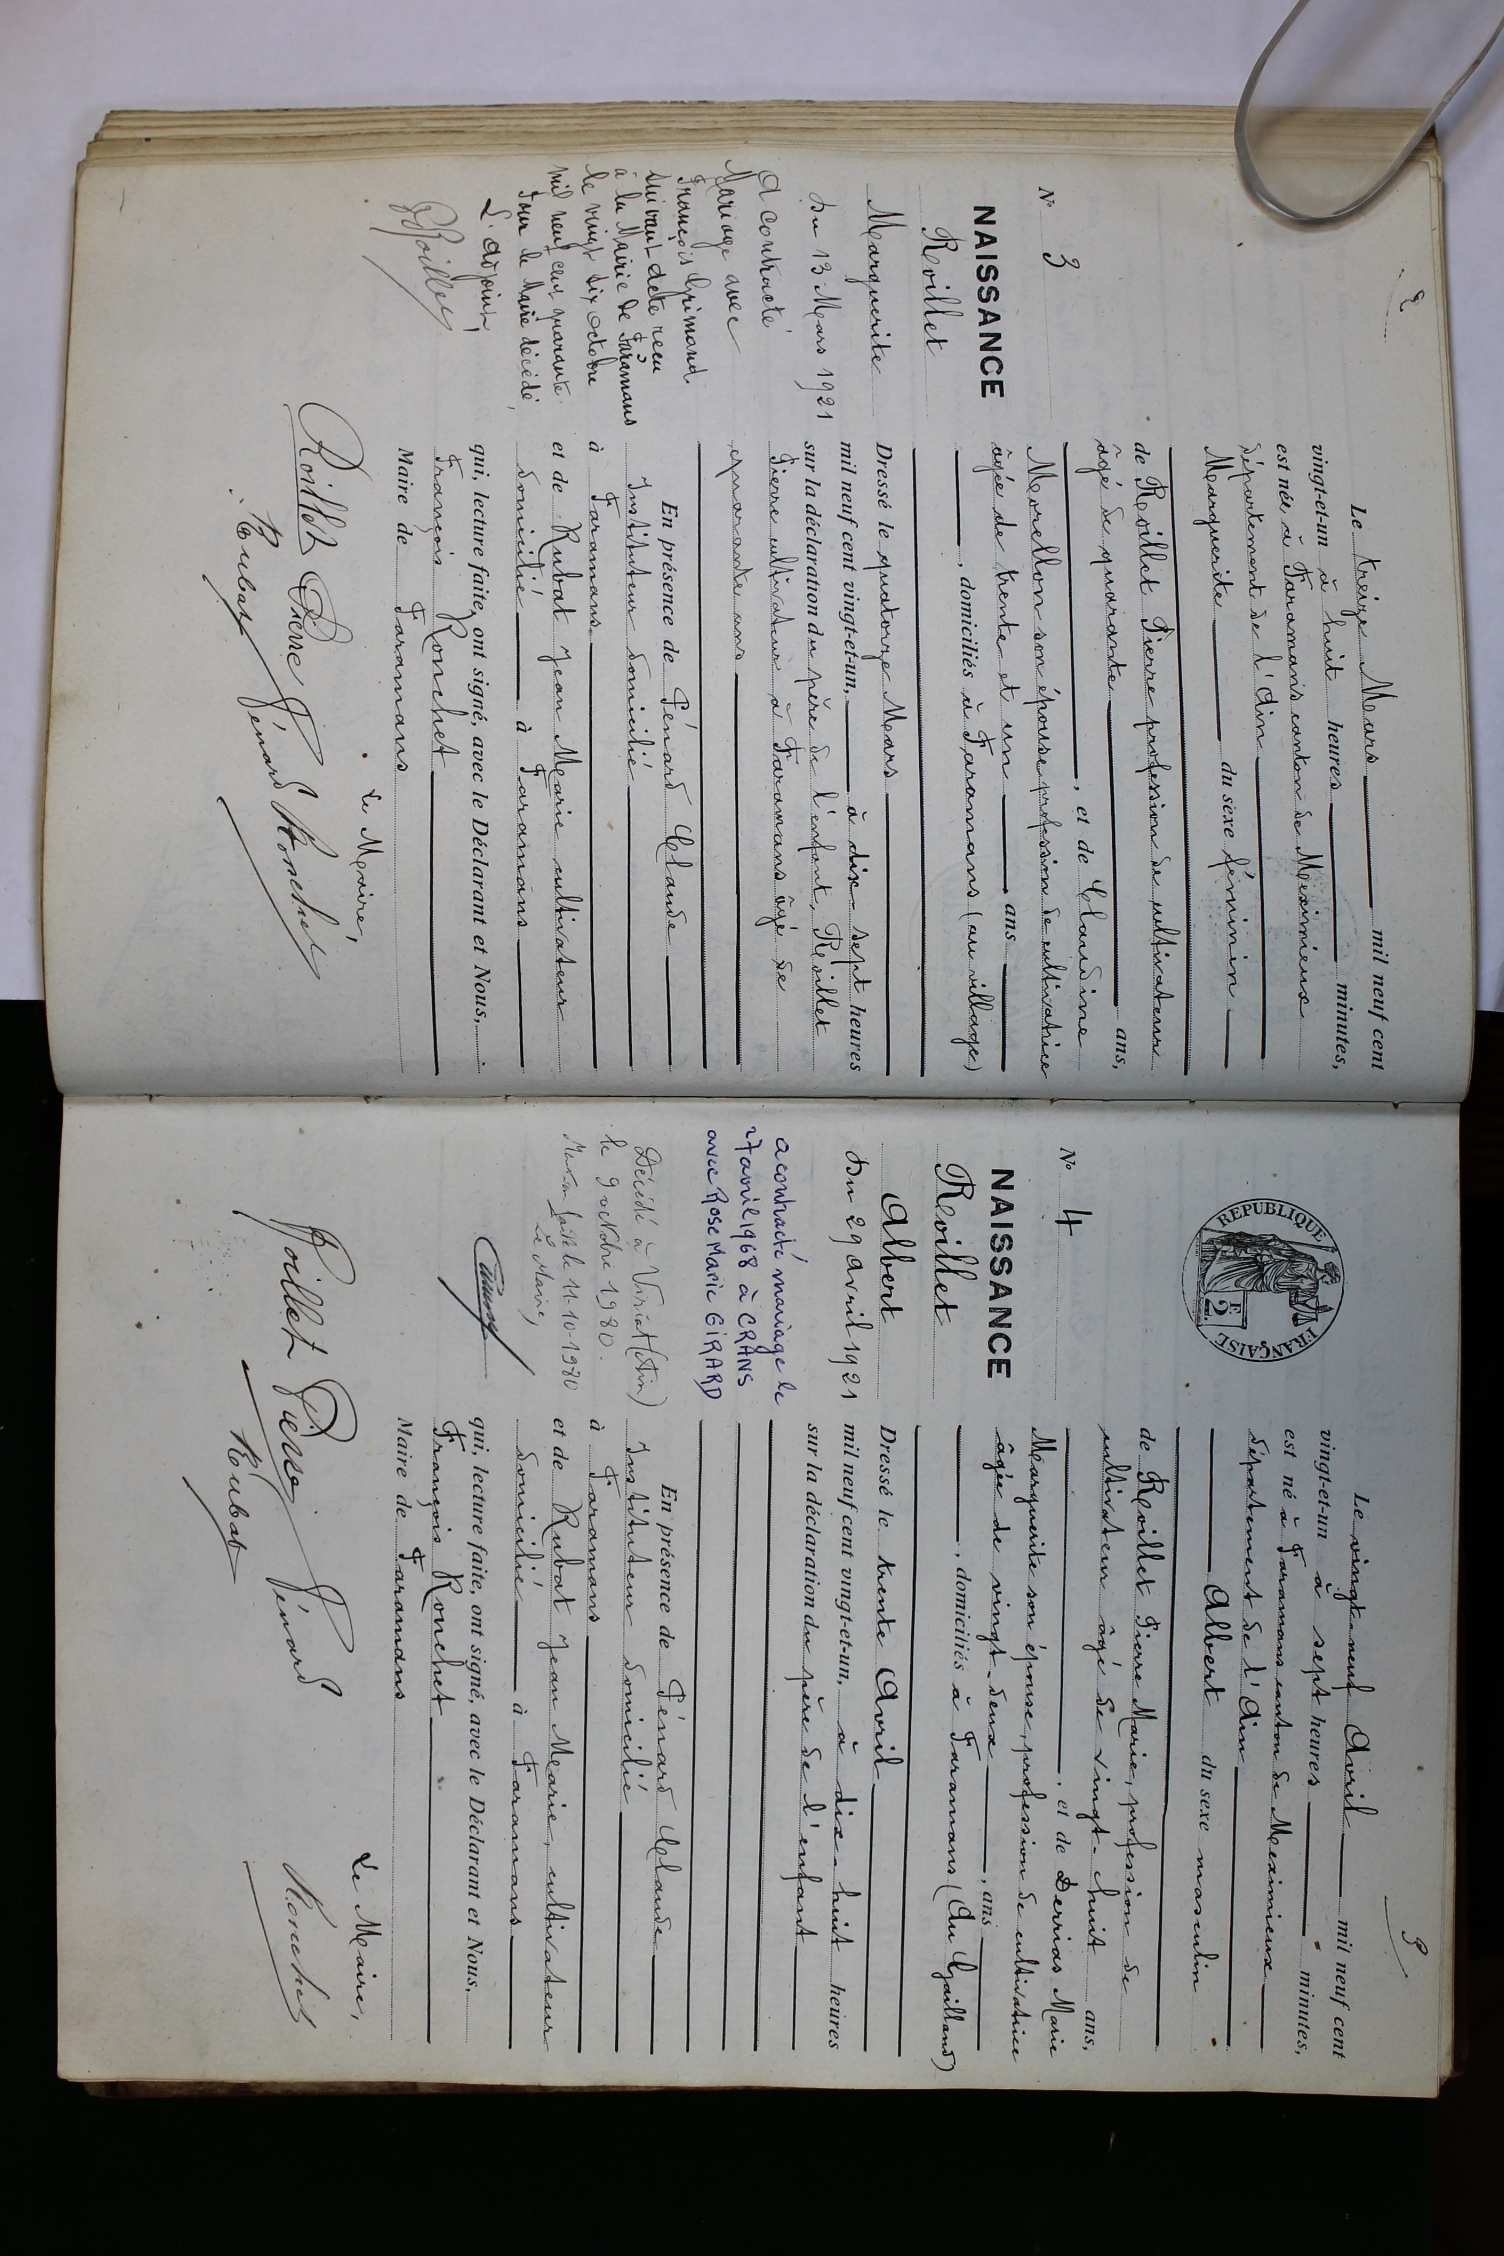 2
N° 3
NAISSANCE
Roillet
Marguerite
Du 13 Mars 1921
A contracté
Mariage avec
François Grimand
suivant acte reçu
à la Mairie de Faramans
le vingt six octobre
mil neuf cent quarante
Pour le Maire décédé,
L'adjoint,
Le treize Mars mil neuf cent
vingt-et-un à huit heures minutes,
est née à Faramans canton de Meximieux
département de l'Ain
Marguerite du sexe féminin
de Roillet Pierre profession de cultivateur
âgé de quarante ans,
, et de Claudine
Morellon son épouse profession de cultivatrice
âgée de trente et un ans
, domiciliés à Faramans (au village)
Dressé le quatorze Mars
mil neuf cent vingt-et-un, à dix-sept heures
sur la déclaration du père de l'enfant, Roillet
Pierre cultivateur à Faramans âgé de
quarante ans
En présence de Pénard Claude
Instituteur domicilié
à Faramans
et de Rubat Jean Marie cultivateur
domicilié à Faramans
qui, lecture faite, ont signé, avec le Déclarant et Nous,
François Ronchet
Maire de Faramans
Le Maire,
Roillet Pierre Pénard Ronchet
Rubat
3
REPUBLIQUE FRANÇAISE
2 F
N° 4
NAISSANCE
Roillet
Albert
Du 29 avril 1921
a contracté mariage le
27 avril 1968 à CRANS
avec Rose Marie GIRARD
Décédé à Viriat (Ain)
le 9 octobre 1980.
Mention faite le 11-10-1980
Le Maire,
Le vingt-neuf Avril mil neuf cent
vingt-et-un à sept heures minutes,
est né à Faramans canton de Meximieux
département de l'Ain
Albert du sexe masculin
de Roillet Pierre Marie, profession de
cultivateur âgé de vingt-huit ans,
, et de Derrias Marie
Marguerite son épouse, profession de cultivatrice
âgée de vingt-deux , ans
, domiciliés à Faramans (Au Gailland)
Dressé le trente Avril
mil neuf cent vingt-et-un, à dix-huit heures
sur la déclaration du père de l'enfant
En présence de Pénard Claude
Instituteur domicilié
à Faramans
et de Rubat Jean Marie, cultivateur
domicilié à Faramans
qui, lecture faite, ont signé, avec le Déclarant et Nous,
François Ronchet
Maire de Faramans
Le Maire,
Roillet Pierre Pénard Ronchet
Rubat